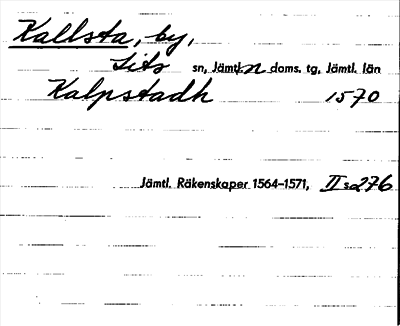 Kallsta, by,
Lits sn, Jämtl. n doms. tg, Jämtl. län
Kalpstadh 1570
Jämtl. Räkenskaper 1564-1571, II s 276